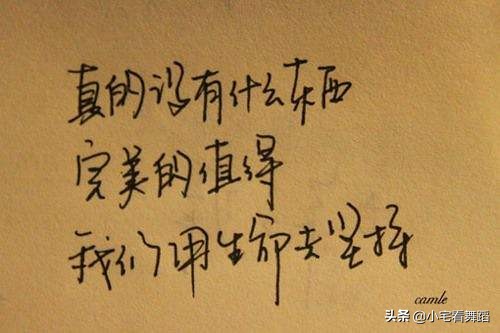 真的没有什么东西
完美的值得
我们用生命去坚持
camle
头条@小宅看舞蹈